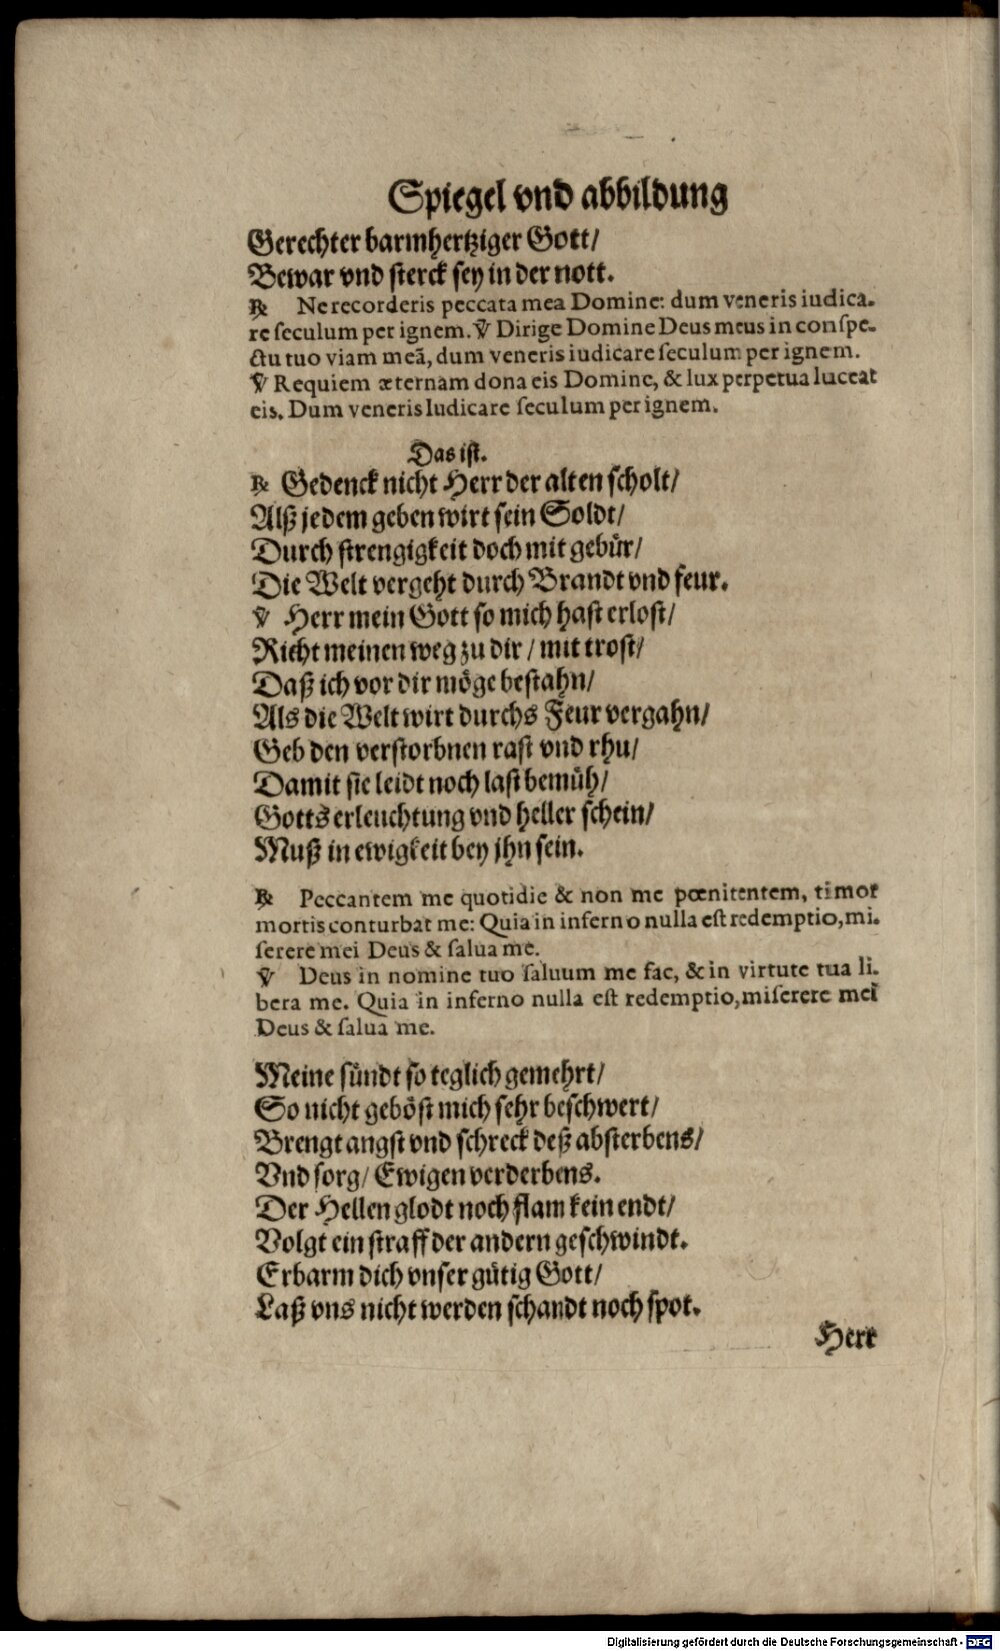 Spiegel vnd abbildung
Gerechter barmhertziger Gott/
Bewar vnd sterck sey in der nott.
℞ Ne recorderis peccata mea Domine: dum veneris iudica-
re seculum per ignem. ℣ Dirige Domine Deus meus in conspe-
ctu tuo viam meã, dum veneris iudicare seculum per ignem.
℣ Requiem æternam dona eis Domine, & lux perpetua luceat
eis. Dum veneris Iudicare seculum per ignem.
Das ist.
℞ Gedenck nicht Herr der alten scholt/
Alß jedem geben wirt sein Soldt/
Durch strengigkeit doch mit gebür/
Die Welt vergeht durch Brandt vnd feur.
℣ Herr mein Gott so mich hast erlost/
Richt meinen weg zu dir / mit trost/
Daß ich vor dir möge bestahn/
Als die Welt wirt durchs Feur vergahn/
Geb den verstorbnen rast vnd rhu/
Damit sie leidt noch last bemüh/
Gotts erleuchtung vnd heller schein/
Muß in ewigkeit bey jhn sein.
℞ Peccantem me quotidie & non me pœnitentem, timor
mortis conturbat me: Quia in inferno nulla est redemptio, mi-
serere mei Deus & salua me.
℣ Deus in nomine tuo saluum me fac, & in virtute tua li-
bera me. Quia in inferno nulla est redemptio, miserere mei
Deus & salua me.
Meine sündt so teglich gemehrt/
So nicht geböst mich sehr beschwert/
Brengt angst vnd schreck deß absterbens/
Vnd sorg/ Ewigen verderbens.
Der Hellen glodt noch flam kein endt/
Volgt ein straff der andern geschwindt.
Erbarm dich vnser gütig Gott/
Laß vns nicht werden schandt noch spot.
Herr
Digitalisierung gefördert durch die Deutsche Forschungsgemeinschaft - DFG